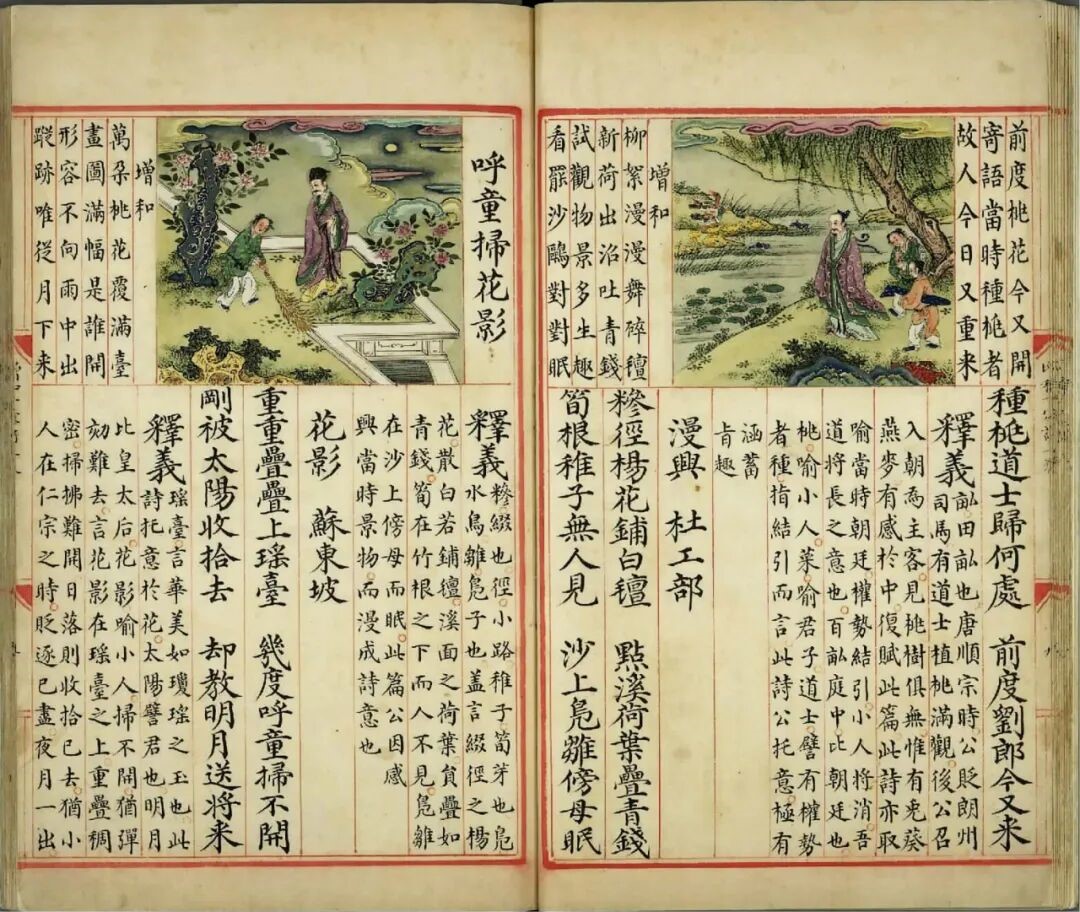 前度桃花今又開
寄語當時種桃者
故人今日又重来
增和
柳絮漫漫舞碎氊
新荷出沼吐青錢
試觀物景多生趣
看罷沙鷗對對眠
種桃道士歸何處　前度劉郎今又来
釋義
畝田畝也唐順宗時公貶朗州
司馬有道士植桃滿觀後公召
入朝為主客見桃樹俱無惟有兎葵
燕麥有感於中復賦此篇此詩亦取
喻當時朝廷權勢結引小人將消吾
道將長之意也百畝庭中比朝廷也
桃喻小人菜喻君子道士譬有權勢
者種指結引而言此詩公托意極有
涵蓄
旨趣
漫興　杜工部
糝徑楊花鋪白氊　點溪荷葉疊青錢
筍根稚子無人見　沙上凫雛傍母眠
呼童掃花影
增和
萬朶桃花覆滿臺
畫圖滿幅是誰開
形容不向雨中出
蹤跡唯從月下来
釋義
糝綴也徑小路稚子筍芽也凫
水鳥雛凫子也盖言綴徑之楊
花散白若鋪氊溪面之荷葉貟疊如
青錢筍在竹根之下而人不見凫雛
在沙上傍母而眠此篇公因感
興當時景物而漫成詩意也
花影　蘇東坡
重重疊疊上瑶臺　幾度呼童掃不開
剛被太陽收拾去　却教明月送將来
釋義
瑶臺言華美如瓊瑶之玉也此
詩托意於花太陽譬君也明月
比皇太后花影喻小人掃不開猶彈
劾難去言花影在瑶臺之上重疊稠
密掃拂難開日落則收拾已去猶小
人在仁宗之時貶逐已盡夜月一出